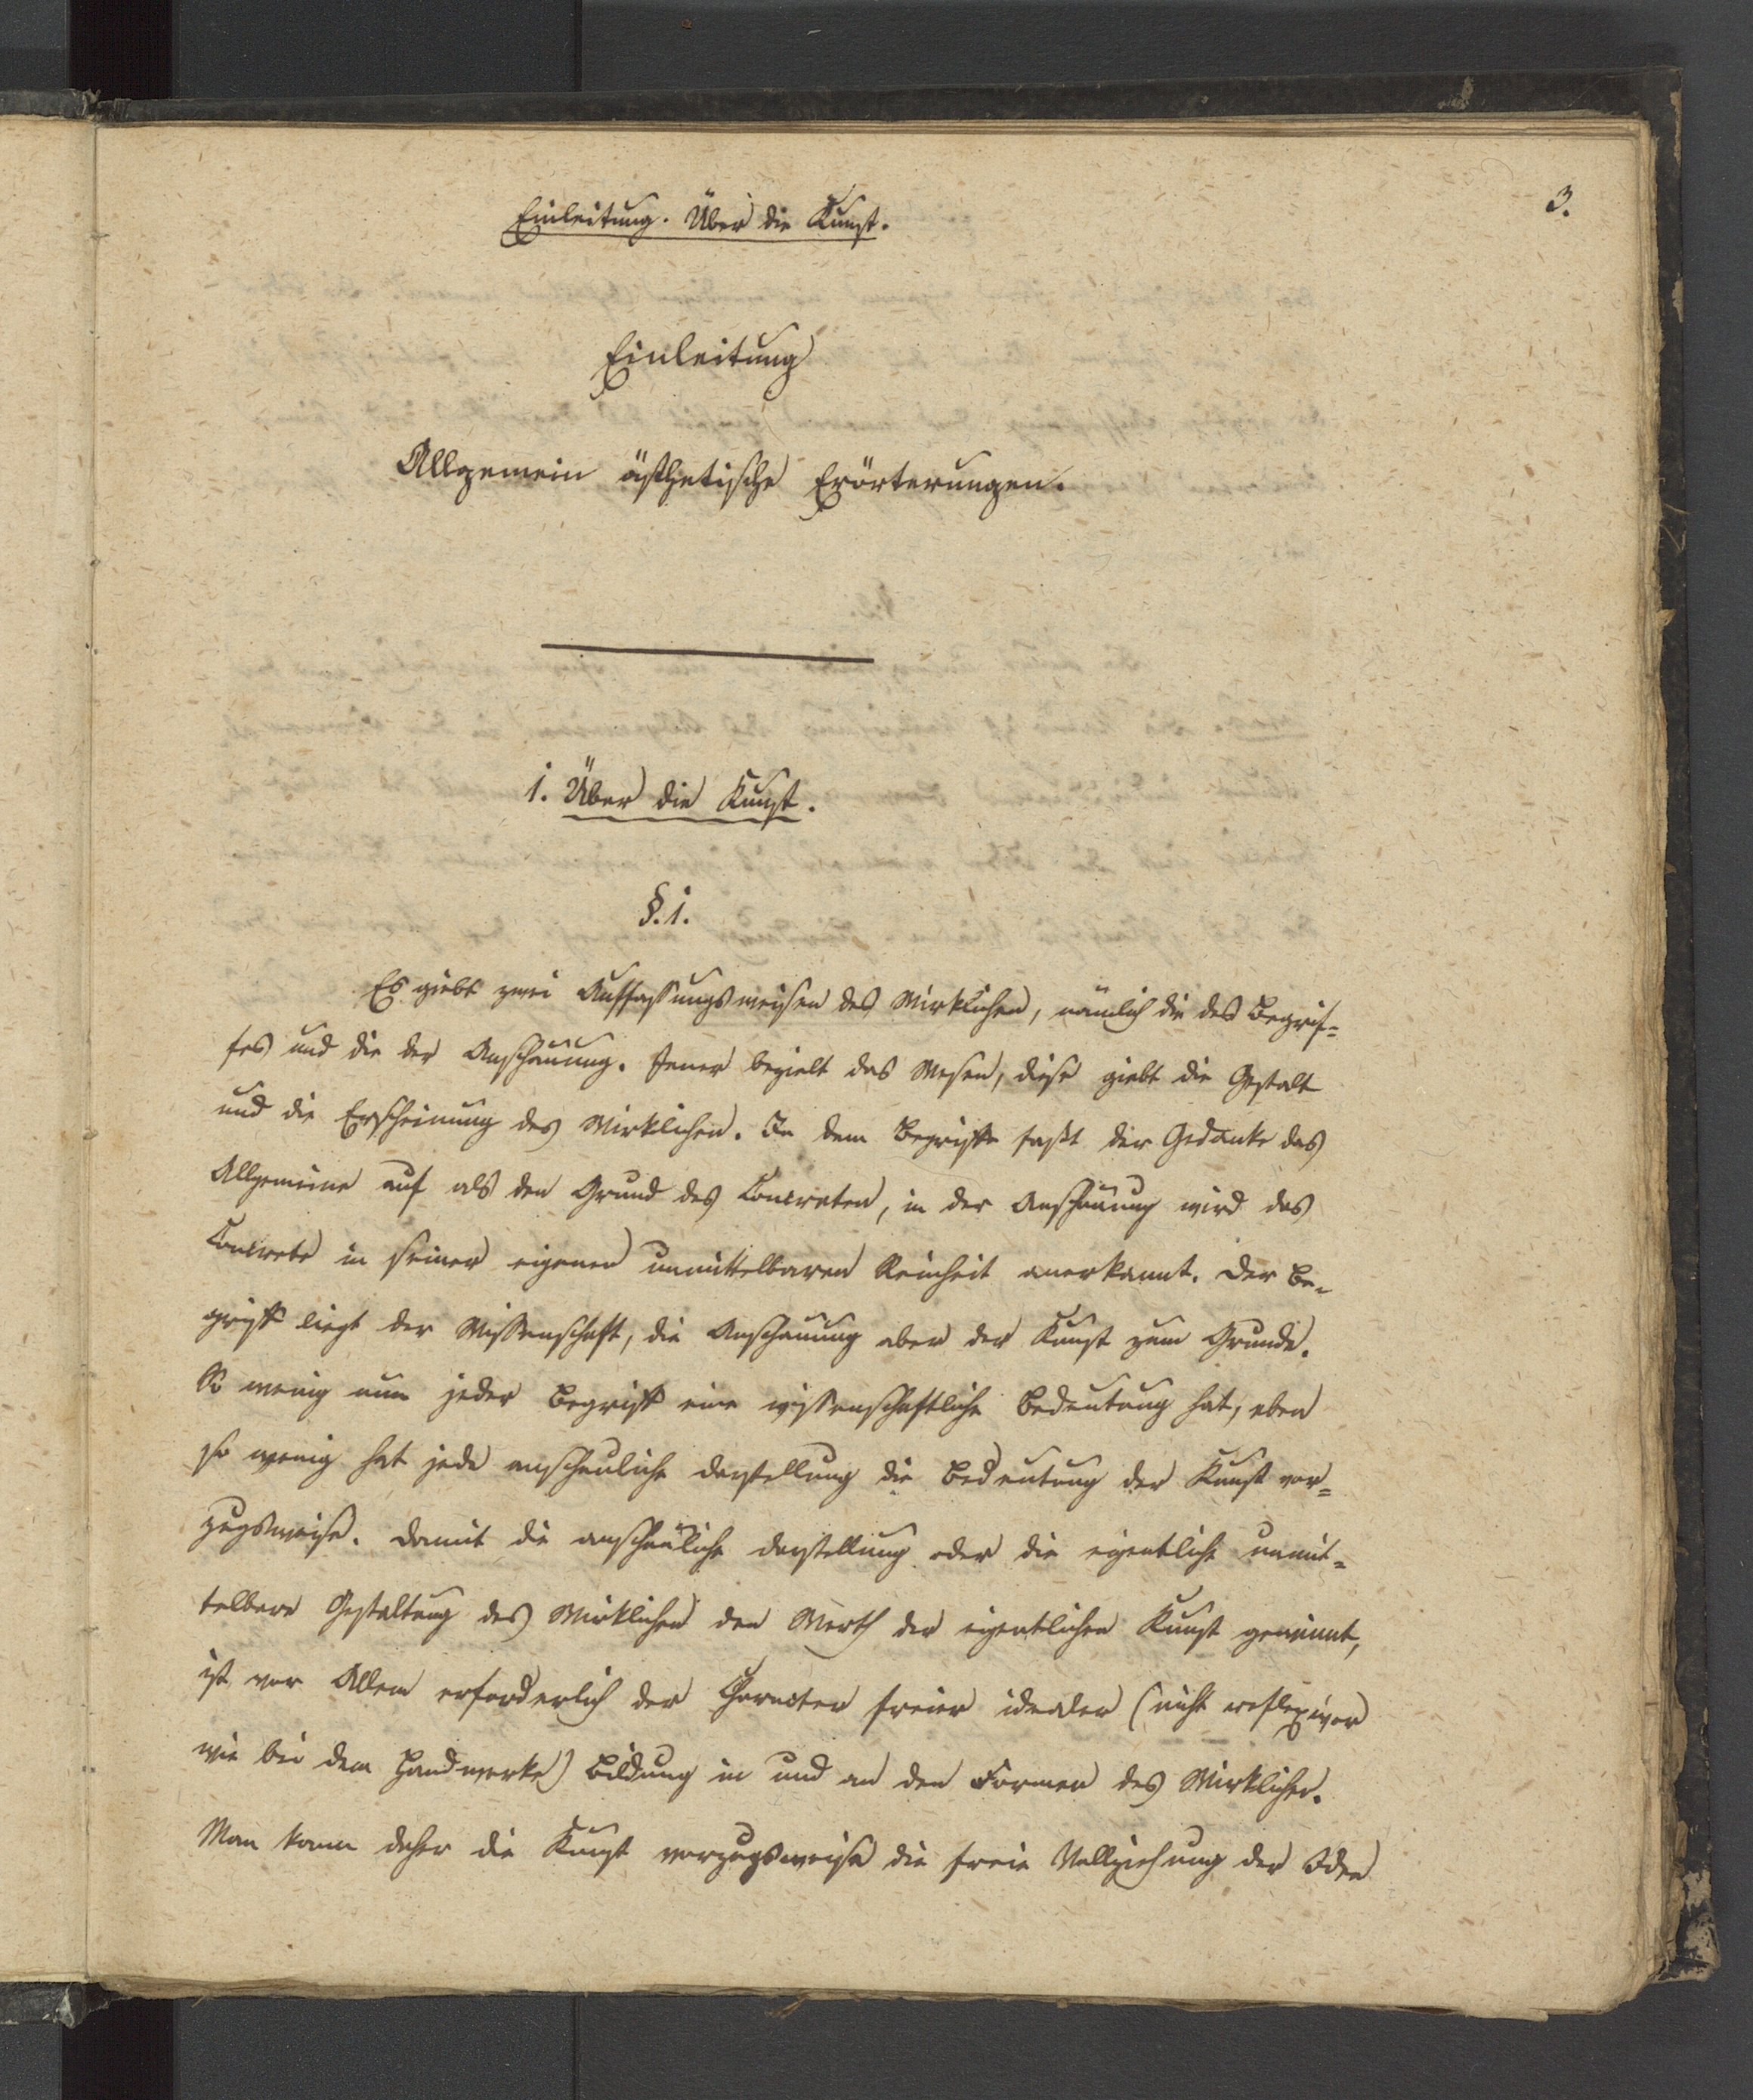 Einleitung. Über die Kunst.
3.
Einleitung
Allgemein ästhetische Erörterungen.
1. Über die Kunst.
§. 1.
Es giebt zwei Auffassungsweisen des Wirklichen, nämlich die des Begrif=
fes und die der Anschauung. Jener bezielt das Wesen, diese giebt die Gestalt
und die Erscheinung des Wirklichen. In dem Begriffe faßt der Gedanke das
Allgemeine auf als den Grund des Concreten, in der Anschauung wird das
Concrete in seiner eigenen unmittelbaren Reinheit anerkannt. Der Be=
griff liegt der Wissenschaft, die Anschauung aber der Kunst zum Grunde.
So wenig nun jeder Begriff eine wissenschaftliche Bedeutung hat, eben
so wenig hat jede anschauliche Darstellung die Bedeutung der Kunst vor=
zugsweise. Damit die anschauliche Darstellung oder die eigentliche unmit=
telbare Gestaltung des Wirklichen den Werth der eigentlichen Kunst gewinnt,
ist vor Allem erforderlich der Character freier idealer (nicht reflexiver
wie bei dem Handwerke) Bildung in und an den Formen des Wirklichen.
Man kann daher die Kunst vorzugsweise die freie Vollziehung der Idee